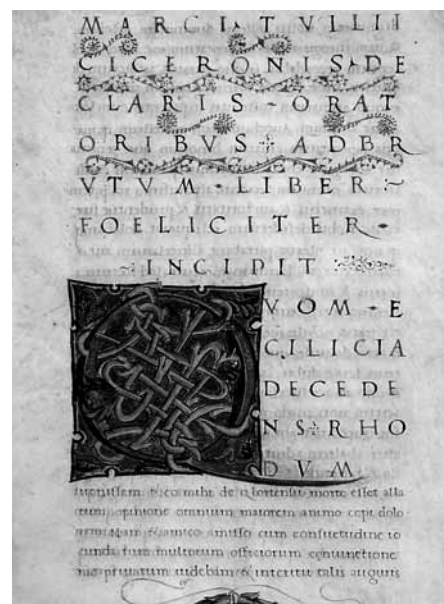 MARCI TVLLII
CICERONIS DE
CLARIS ORAT
ORIBVS ADBR
VTVM LIBER
FOELICITER
INCIPIT
QVOM E
CILICIA
DECEDE
NS RHO
DVM
uenissem & eo mihi de q hortensii morte esset alla
tum: opinione omnium maiorem animo cepi dolo
rem nam & amico amisso cum consuetudine io
cunda tum multorum officiorum coniunctione
me priuatum uidebam & interitu talis auguris